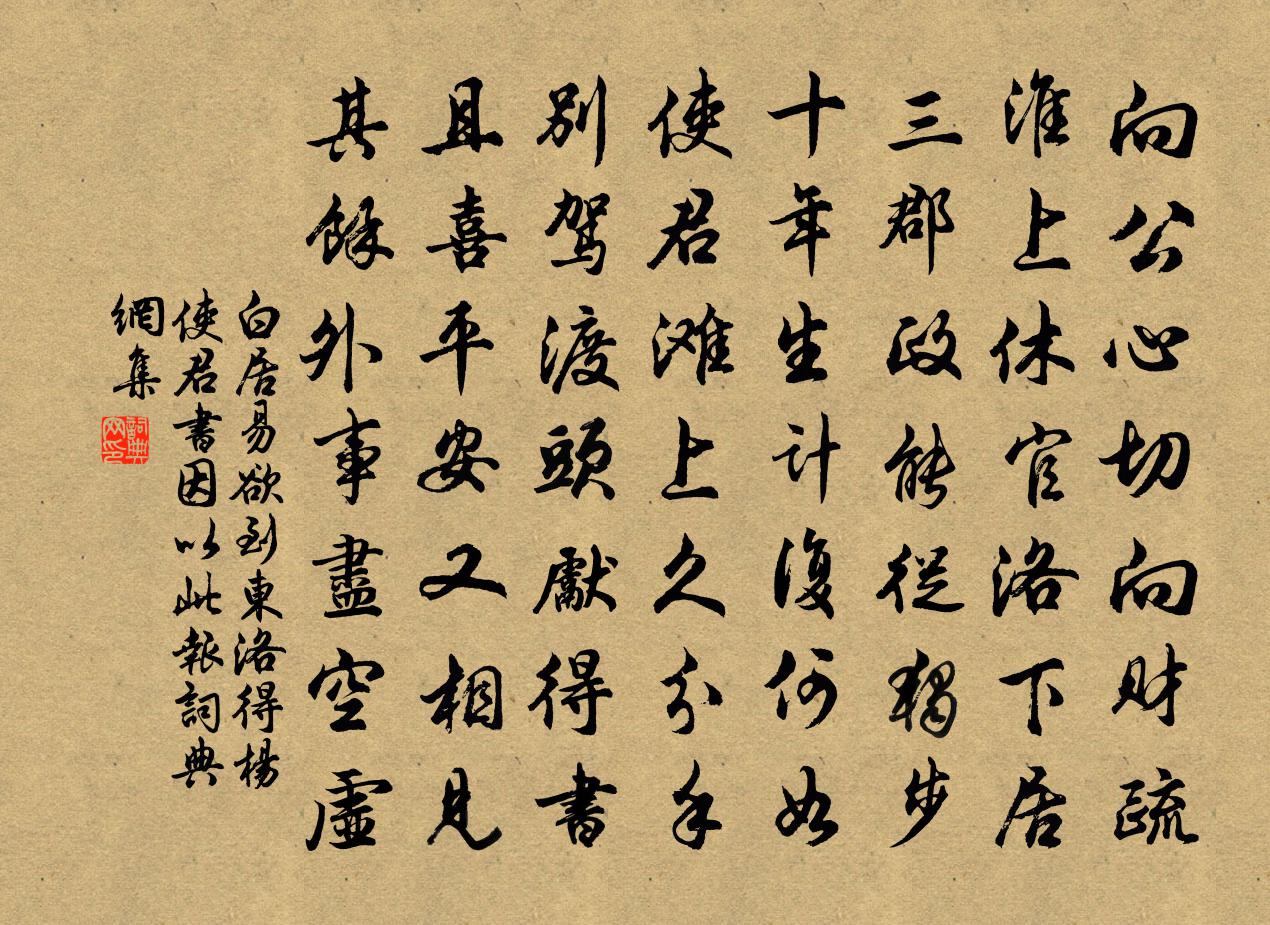 向公心切向财疏
淮上休官洛下居
三郡政能從獨步
十年生计復何如
使君滩上久分手
别驾渡頭獻得書
且喜平安又相見
其餘外事盡空虛
白居易欲到東洛得楊
使君書因以此報詞典
網集
詞典网印